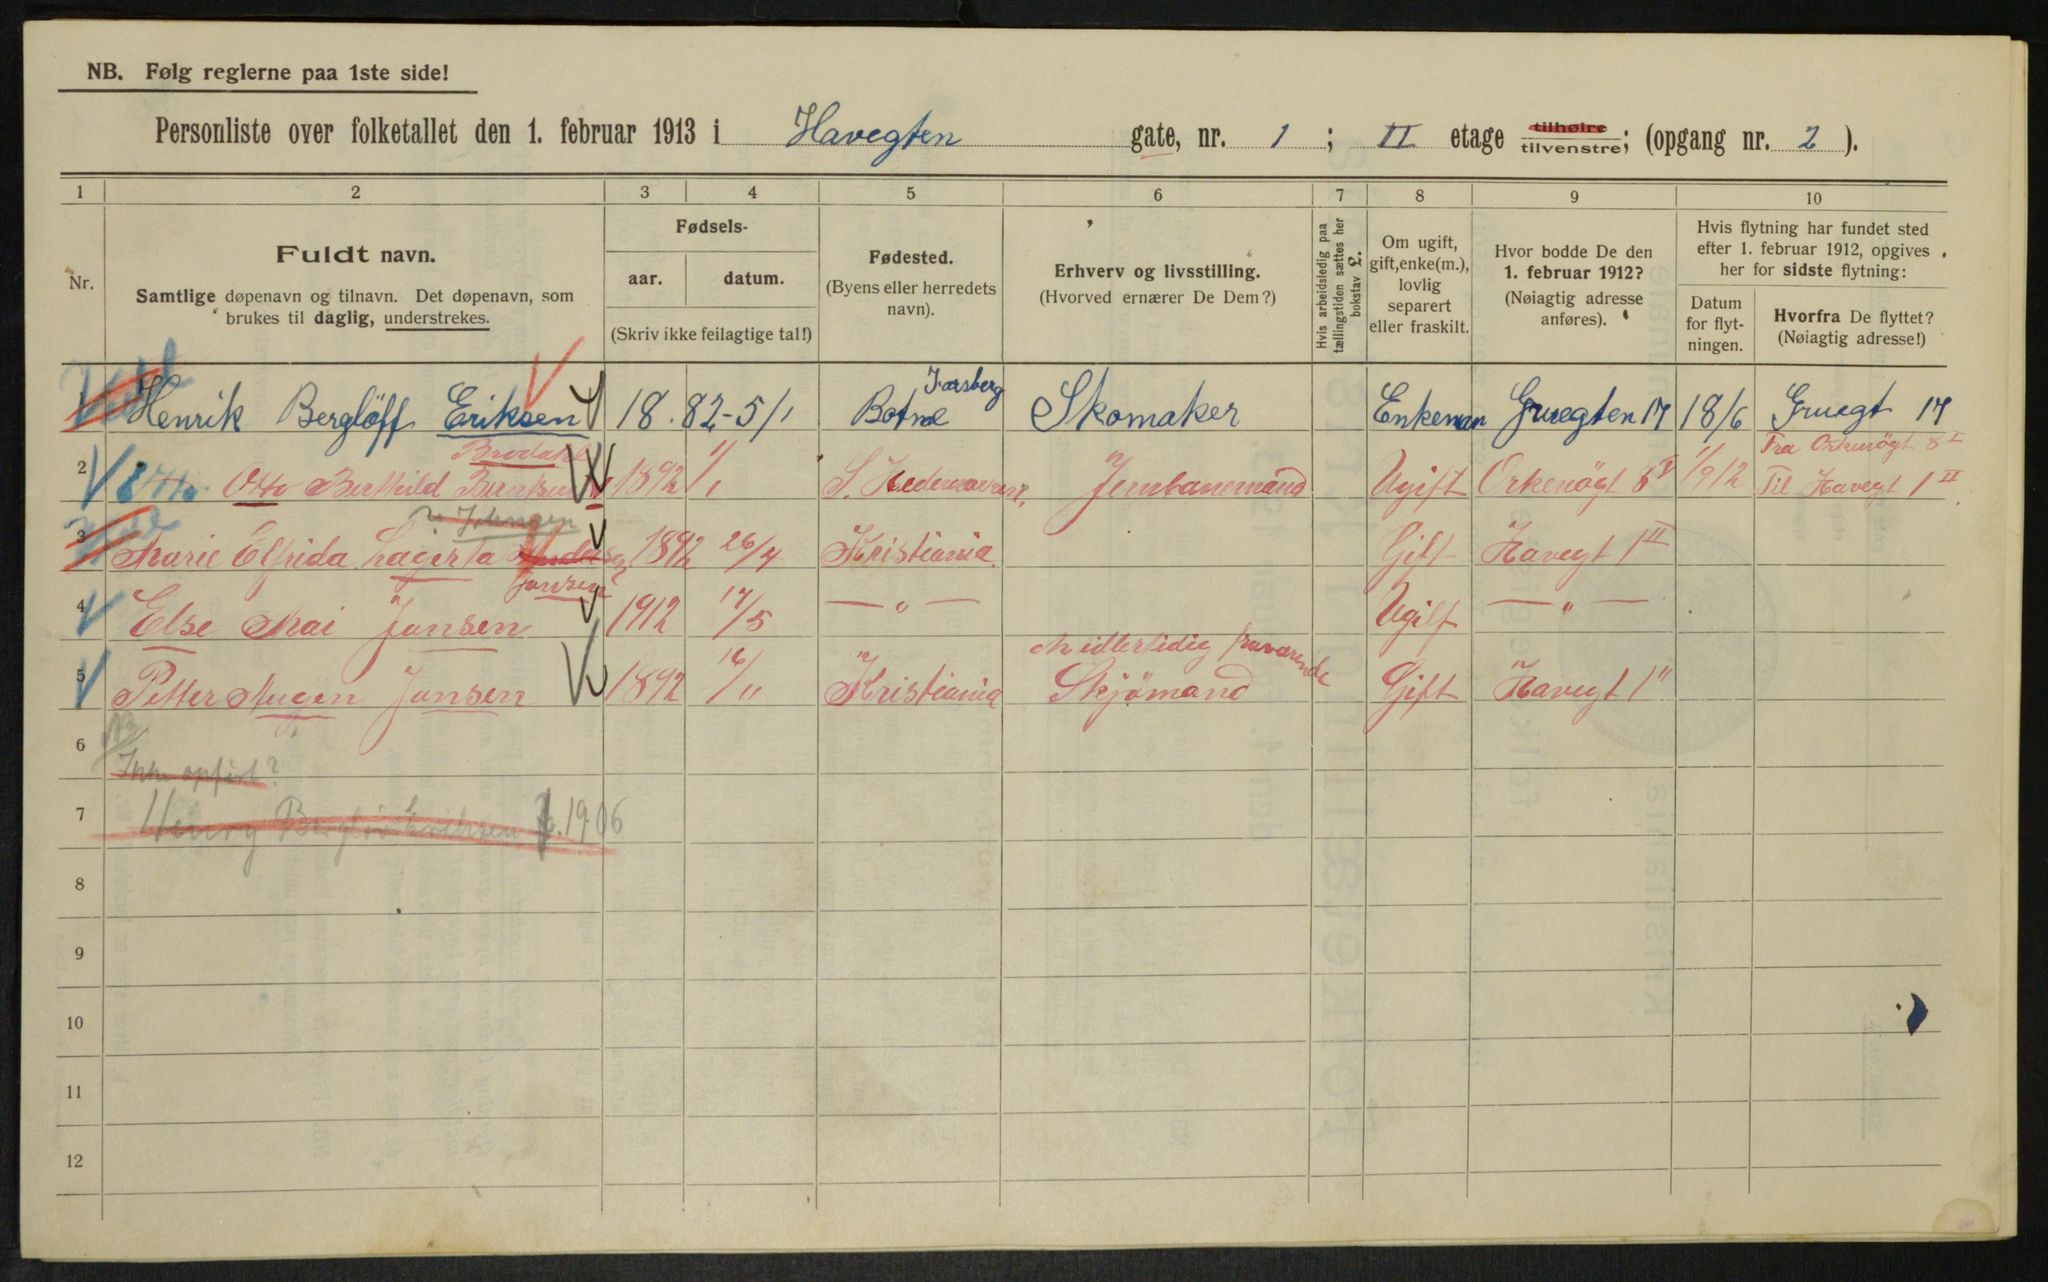 NB. Følg reglerne paa 1ste side!
Personliste over folketallet den 1. februar 1913 i Havegten gate, nr. 1 ; II etage tilhøire tilvenstre; (opgang nr. 2 ).
1 2 3 4 5 6 7 8 9 10
Nr.
Fuldt navn.
Samtlige døpenavn og tilnavn. Det døpenavn, som
brukes til daglig, understrekes.
Fødsels-
aar. datum.
(Skriv ikke feilagtige tal!)
Fødested.
(Byens eller herredets
navn).
Erhverv og livsstilling.
(Hvorved ernærer De Dem?)
Hvis arbeidsledig paa
tællingstiden sættes her
bokstav L.
Om ugift,
gift, enke(m.),
lovlig
separert
eller fraskilt.
Hvor bodde De den
1. februar 1912?
(Nøiagtig adresse
anføres).
Hvis flytning har fundet sted
efter 1. februar 1912, opgives
her for sidste flytning:
Datum
for flyt-
ningen.
Hvorfra De flyttet?
(Nøiagtig adresse!)
Jarsberg
Henrik Berglöff Eriksen 18.82-5/1 Botne Skomaker Enkeman Gruegten 17 18/6 Gruegt 17
Brodahl Fra Orkenögt 8 I
2 Otto Berthild 1892 1/1 S. Hedemarken Jernbanemand Ugift Orkenögt 8 I 1/9 12 Til Havegt 1 II
3 Marie Elfrida Lagerta 1892 26/4 Kristiania Gift Havegt 1 II
Jansen
4 Else Mai Jansen 1912 17/5 — " — Ugift — " —
Midlertidig fraværende
5 Petter Augen Jansen 1892 16/11 Kristiania Skjömand Gift Havegt 1"
6 NB
Ikke opført?
7 Henry Berglöv Eriksen f. 1906
8
9
10
11
12